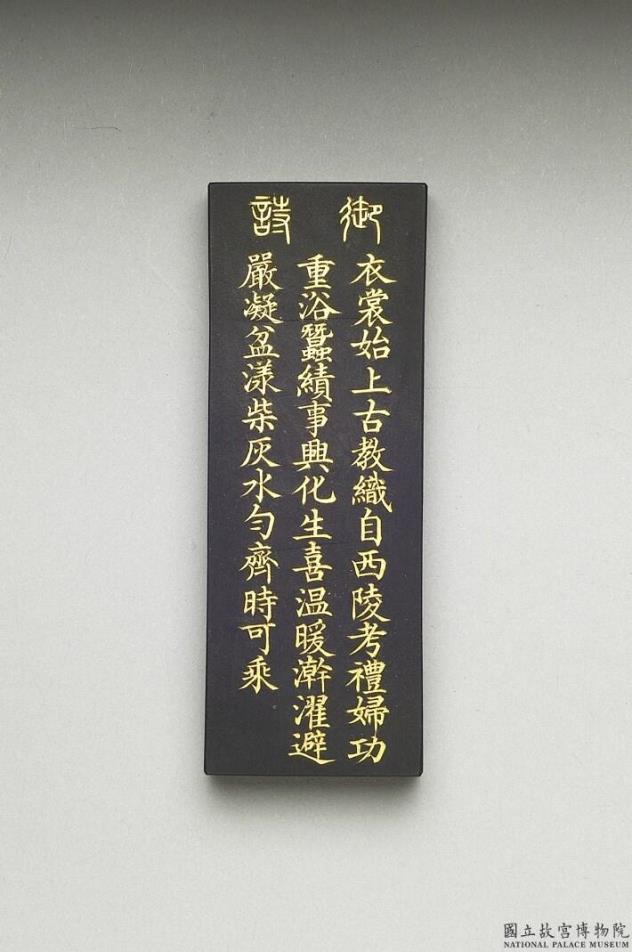 御詩
衣裳始上古教織自西陵考禮婦功
重浴蠶績事興化生喜溫暖澣濯避
嚴凝盆漾柴灰水勻齊時可乘
國立故宮博物院
NATIONAL PALACE MUSEUM